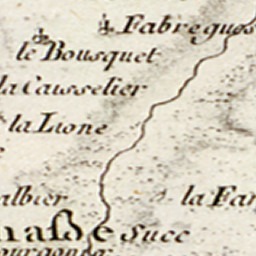 Fabregues
le Bousquet
la Causselier
la Lione
albier
la Far
nasde Succ
ourgange